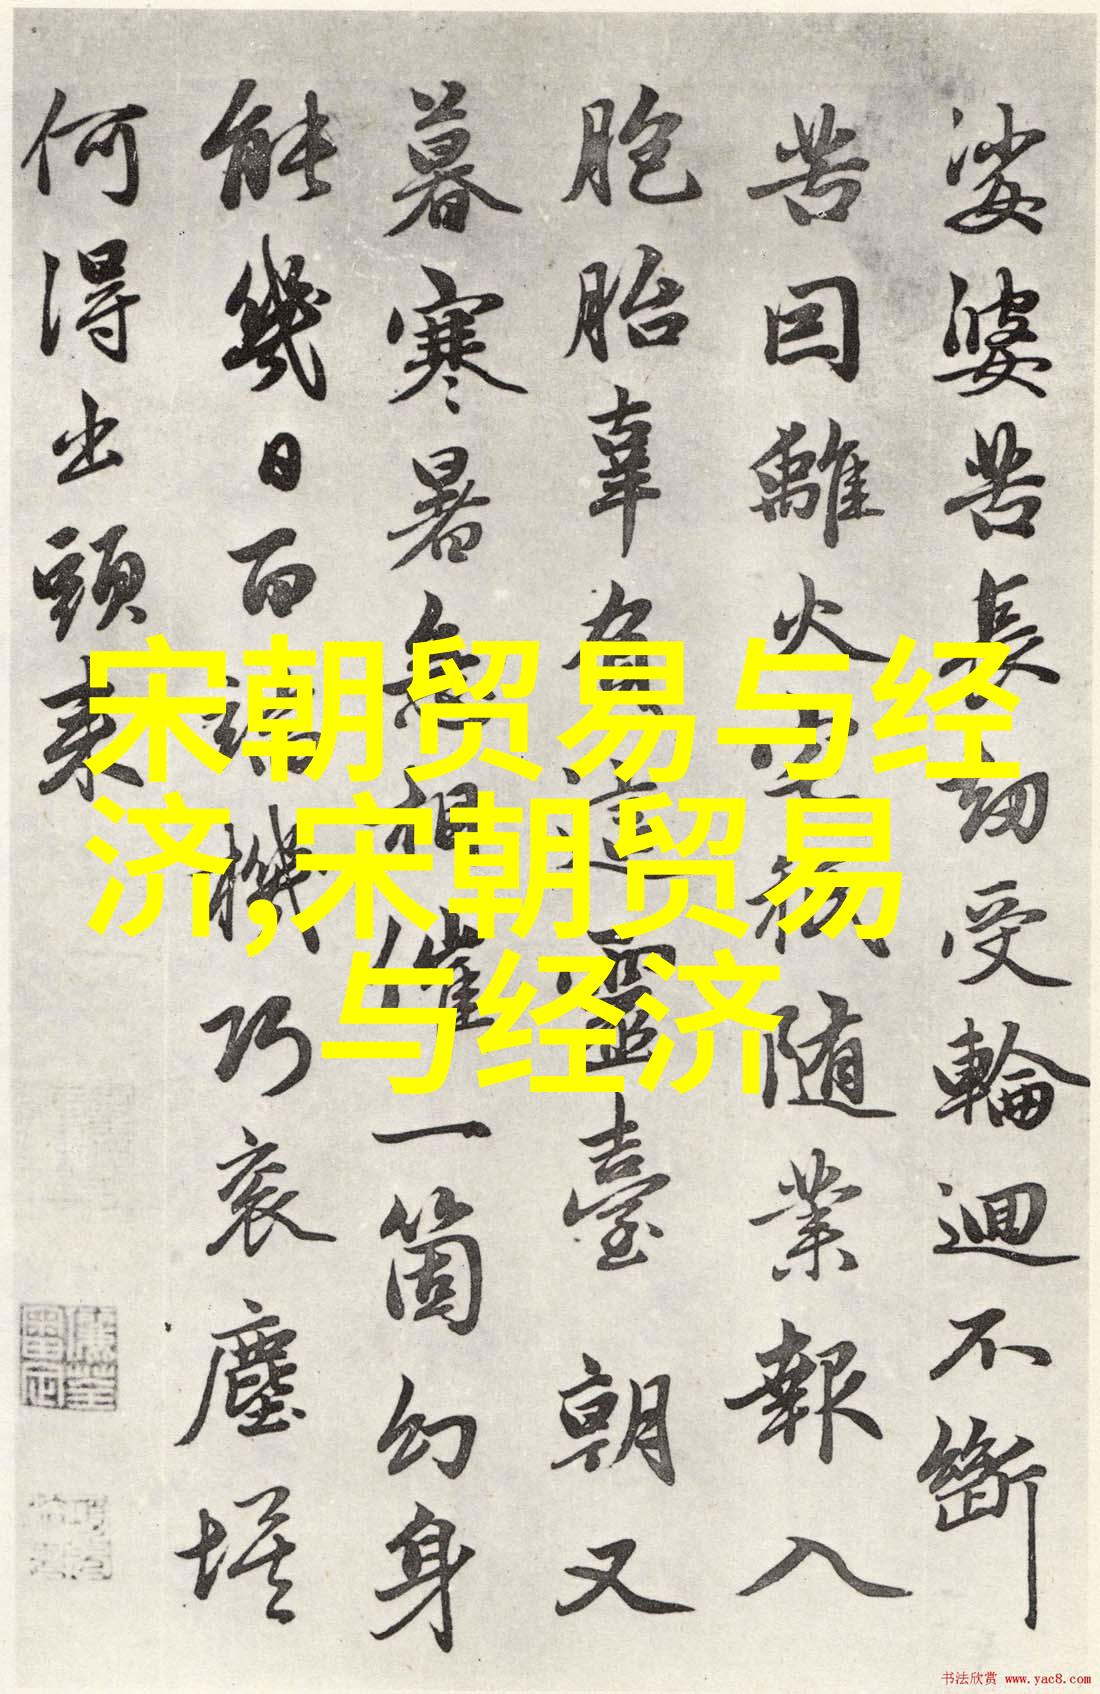 宋朝贸易与经
济,宋朝贸易
与经济
娑婆苦長劫受輪迴不斷
苦因離火宅
随業報入
胞胎辜有
這靈臺朝又
暮寒暑無相催一箇幻身
能幾日百端機巧衮塵埃
何得出頭來
书法欣赏 www.yac8.com